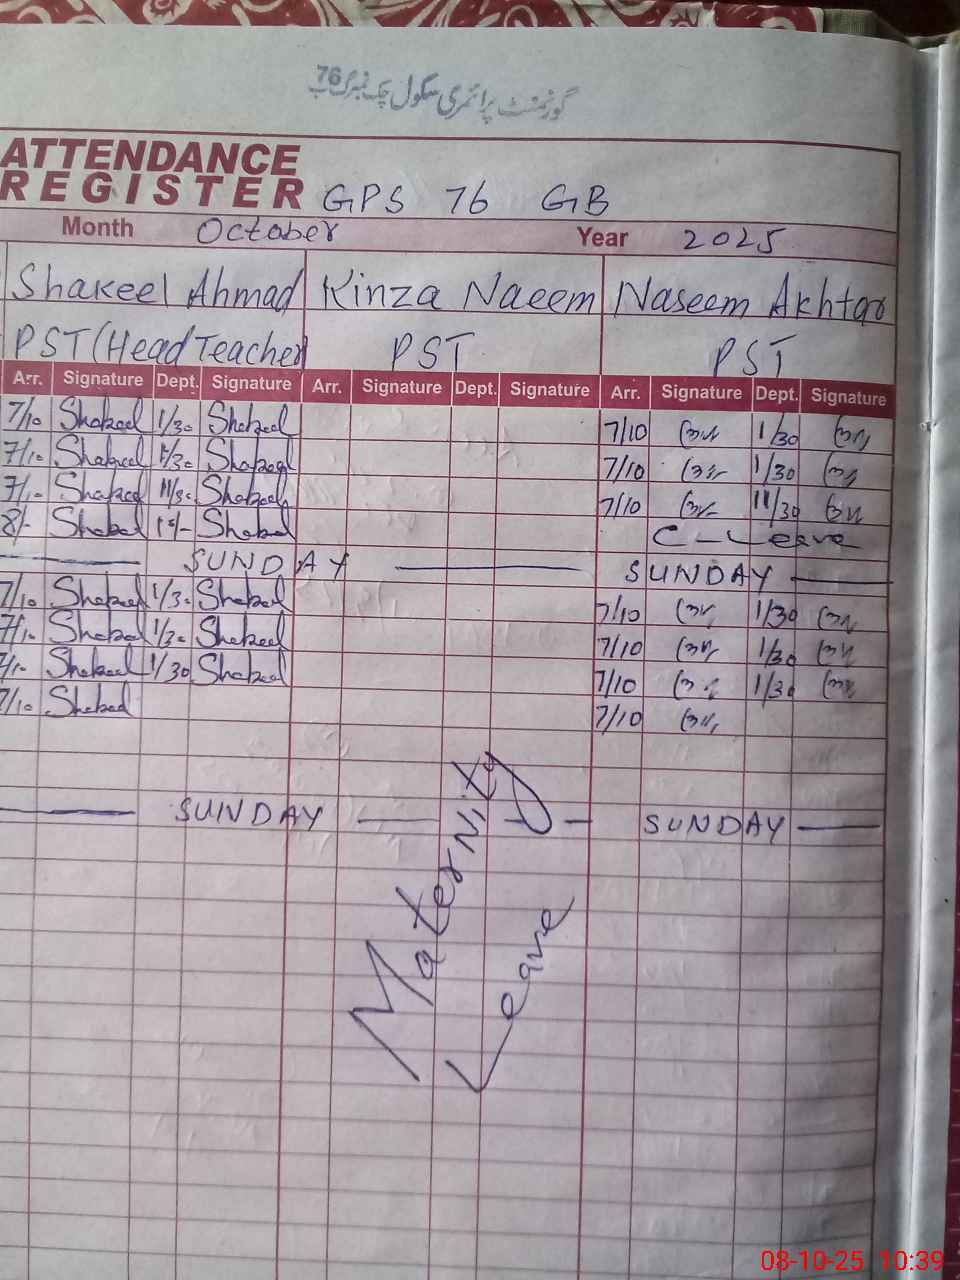 گورنمنٹ پرائمری سکول چک نمبر 76 گ ب
ATTENDANCE
REGISTER GPS 76 GB
Month October Year 2025
Shakeel Ahmad Kinza Naeem Naseem Akhtar
PST (Head Teacher) PST PST
Arr. Signature Dept. Signature Arr. Signature Dept. Signature Arr. Signature Dept. Signature
7/10 Shakeel 1/30 Shakeel 7/10 1/30
7/10 Shakeel 1/30 Shakeel 7/10 1/30
7/10 Shakeel 11/30 Shakeel 7/10 11/30
8/- Shakeel Shakeel C-Leave
SUNDAY SUNDAY
7/10 Shakeel 1/30 Shakeel 7/10 1/30
7/10 Shakeel 1/30 Shakeel 7/10 1/30
7/10 Shakeel 1/30 Shakeel 7/10 1/30
7/10 Shakeel 7/10
SUNDAY SUNDAY
Maternity
Leave
08-10-25 10:39